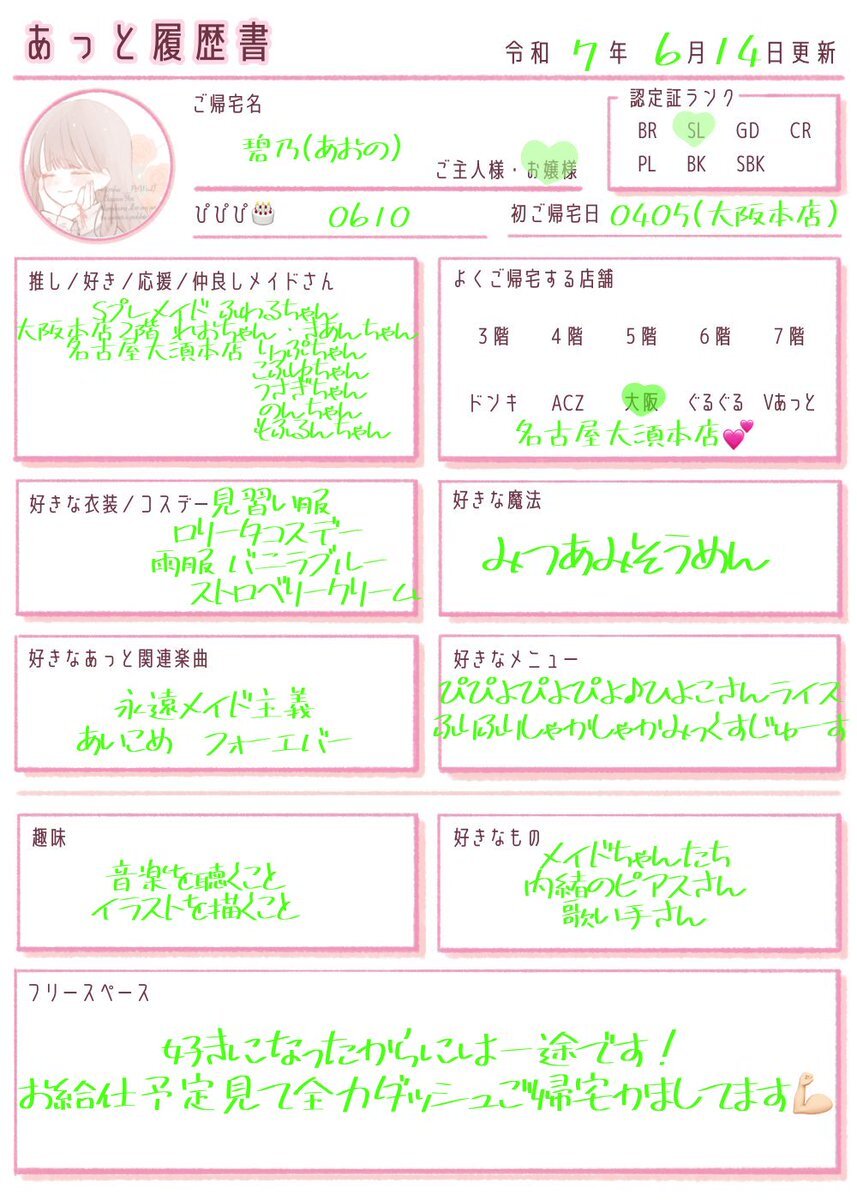 あっと履歴書
令和 7年 6月14日更新
ご帰宅名
碧乃(あおの)
ご主人様・お嬢様
認定証ランク
BR SL GD CR
PL BK SBK
ぴぴぴ🎂 0610
初ご帰宅日 0405(大阪本店)
推し/好き/応援/仲良しメイドさん
Sプレメイド ふわるちゃん
大阪本店2階 れおちゃん・さあんちゃん
名古屋大須本店 りっぷちゃん
こふゆちゃん
うさぎちゃん
のんちゃん
そふるんちゃん
よくご帰宅する店舗
3階 4階 5階 6階 7階
ドンキ ACZ 大阪 ぐるぐる Vあっと
名古屋大須本店💕
好きな衣装/コスデー見習い服
ロリータコスデー
雨服 バニラブルー
ストロベリークリーム
好きな魔法
みつあみそうめん
好きなあっと関連楽曲
永遠メイド主義
あいこめ フォーエバー
好きなメニュー
ぴぴよぴよぴよ♪ひよこさんライス
ふりふりしゃかしゃかみっくすじゅーす
趣味
音楽を聴くこと
イラストを描くこと
好きなもの
メイドちゃんたち
内緒のピアスさん
歌い手さん
フリースペース
好きになったからには一途です!
お給仕予定見て全力ダッシュご帰宅かましてます💪🏻